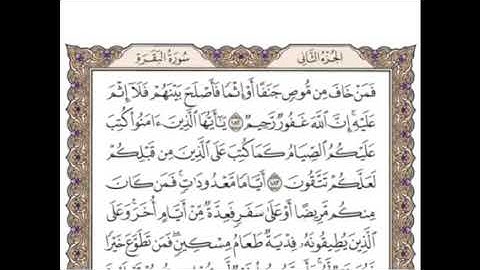 الجزء الثاني
سورة البقرة
فَمَنْ خَافَ مِن مُّوصٍ جَنَفًا أَوْ إِثْمًا فَأَصْلَحَ بَيْنَهُمْ فَلَا إِثْمَ
عَلَيْهِ إِنَّ اللَّهَ غَفُورٌ رَّحِيمٌ ١٨٢ يَا أَيُّهَا الَّذِينَ ءَامَنُوا كُتِبَ
عَلَيْكُمُ الصِّيَامُ كَمَا كُتِبَ عَلَى الَّذِينَ مِن قَبْلِكُمْ
لَعَلَّكُمْ تَتَّقُونَ ١٨٣ أَيَّامًا مَّعْدُودَاتٍ فَمَن كَانَ
مِنكُم مَّرِيضًا أَوْ عَلَى سَفَرٍ فَعِدَّةٌ مِّنْ أَيَّامٍ أُخَرَ وَعَلَى
الَّذِينَ يُطِيقُونَهُ فِدْيَةٌ طَعَامُ مِسْكِينٍ فَمَن تَطَوَّعَ خَيْرًا